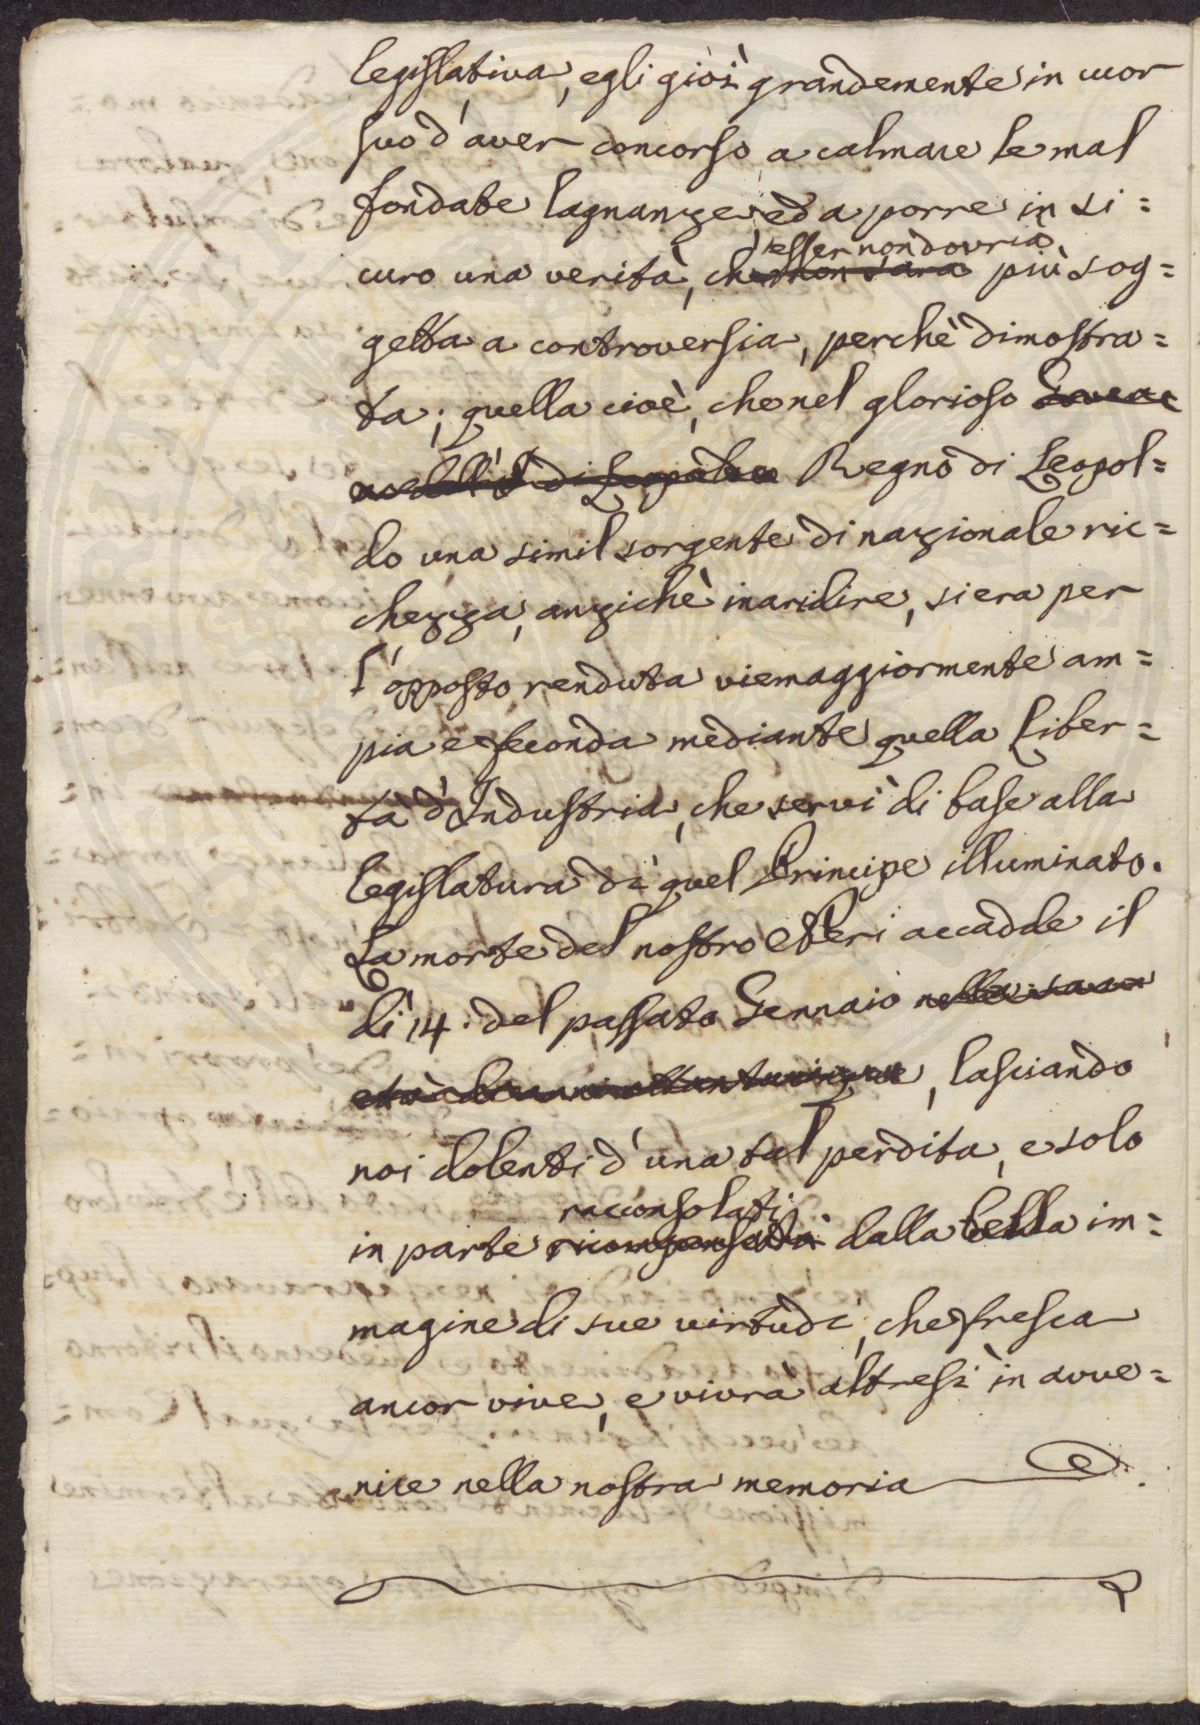 legislativa, egli gioì grandemente in cuor
suo d'aver concorso a calmare le mal
fondate lagnanze, ed a porre in si=
esser non dovrià
curo una verità, che non sarà più sog=
getta a controversia, perchè dimostra=
ta; quella cioè, che nel glorioso
di Leopoldo Regno di Leopol=
do una simil sorgente di nazionale ric=
chezza, anzichè inaridire, si era per
l'opposto renduta viemaggiormente am=
pia e feconda mediante quella Liber=
tà d'Industria, che servì di base alla
legislatura di quel Principe illuminato.
La morte del nostro Neri accadde il
dì 14. del passato Gennaio nella sua
età, lasciando
noi dolenti d'una tal perdita, e solo
racconsolati
in parte ricompensati dalla bella im=
magine di sue virtudi, che fresca
ancor vive, e vivrà altresì in avve=
nire nella nostra memoria